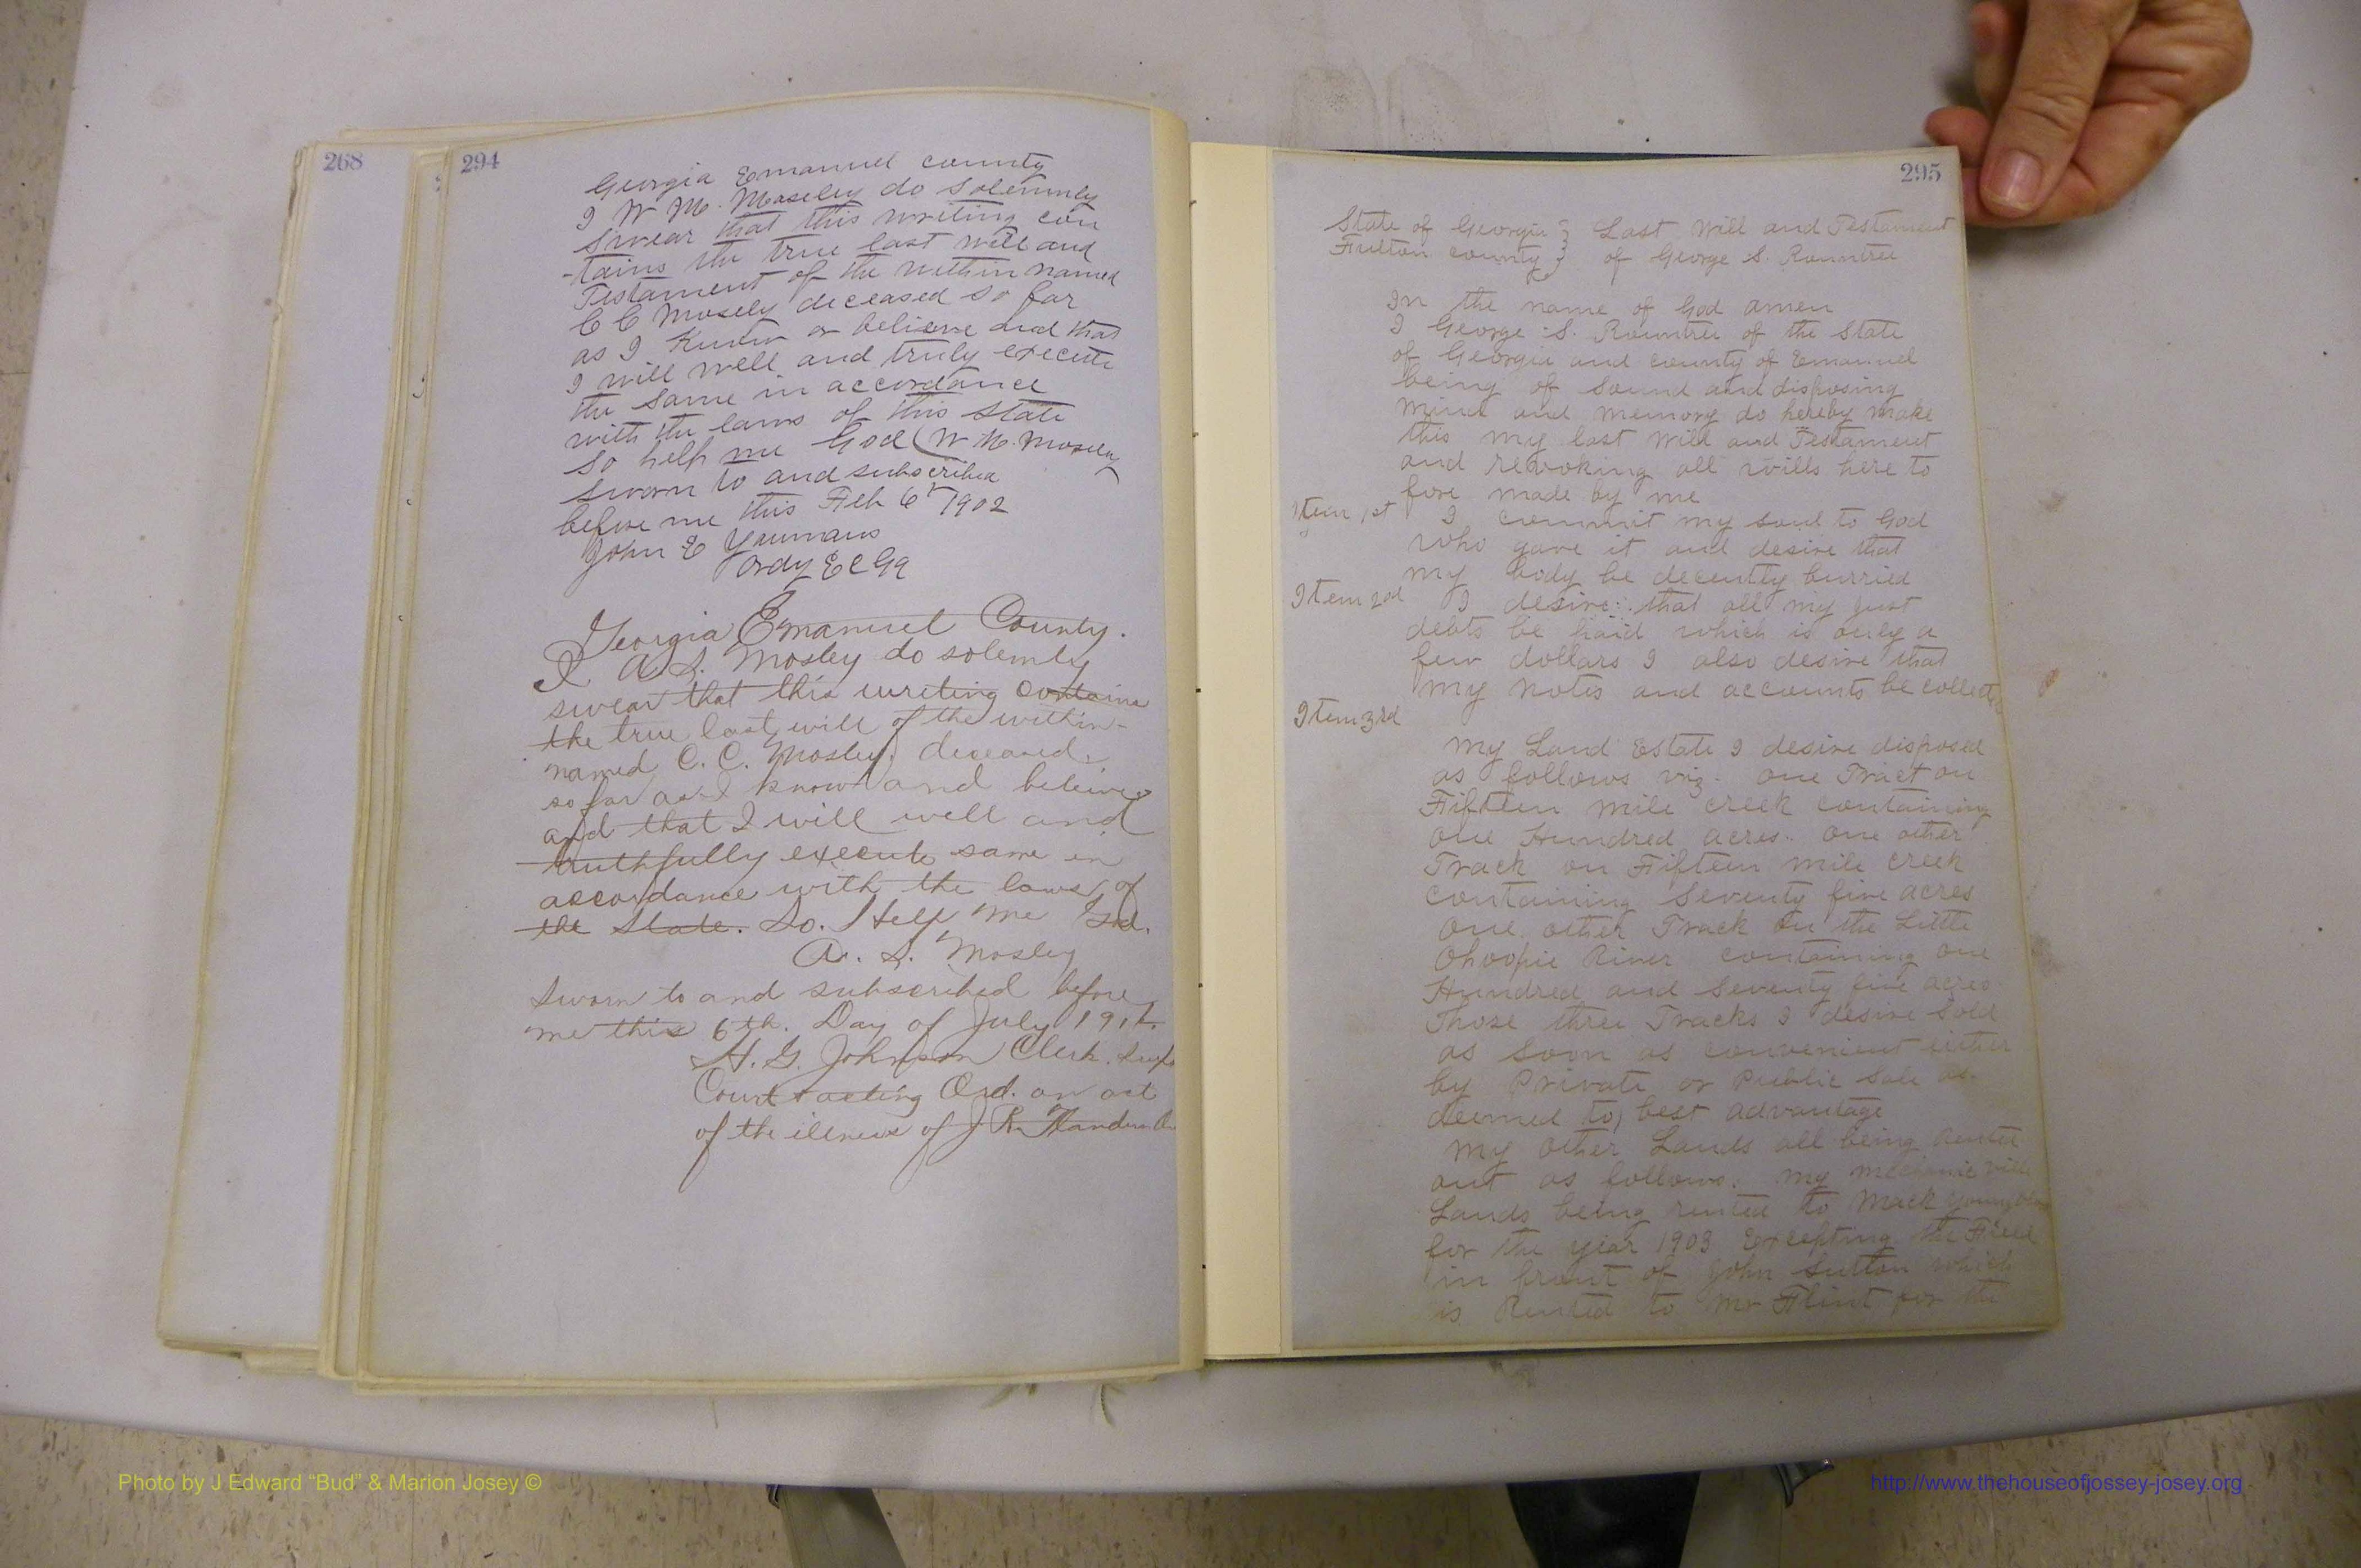 268
294
Georgia Emanuel county
I W M. Moseley do solemnly
swear that this writing con
-tains the true last will and
Testament of the within named
C C Mosely deceased so far
as I Know or believe and that
I will well and truly execute
the same in accordance
with the laws of this State
So help me God (W M. Moseley
Sworn to and subscribed
before me this Feb 6th 1902
John E Youmans
Ordy E C Ga
Georgia Emanuel County.
I. A. S. Mosley do solemly
swear that this writing contains
the true last will of the within-
named C. C. Mosley, deceased,
so far as I know and believe
and that I will well and
truthfully execute same in
accordance with the laws of
the State. So. Help me God.
A. S. Mosley
Sworn to and subscribed before
me this 6th. Day of July 191
H. G. Johnson Clerk. Supr
Court + acting Ord. on act
of the illness of J R. Flanders
295
State of Georgia } Last Will and Testament
Fulton county } of George S. Rountree
In the name of God amen
I George S. Rountree of the State
of Georgia and county of Emanuel
being of sound and disposing
mind and memory do hereby make
this my last will and Testament
and revoking all wills here to
fore made by me
Item 1st I commit my soul to God
who gave it and desire that
my body be decently burried
Item 2nd I desire that all my just
debts be paid which is only a
few dollars I also desire that
my notes and accounts be collect
Item 3rd
My Land Estate I desire disposed
as follows viz. one Tract on
Fifteen mile creek containing
one Hundred acres. one other
Track on Fifteen mile creek
containing seventy five acres
one other Track on the Little
Ohoopie River containing one
Hundred and seventy five acres
Those three Tracks I desire sold
as soon as convenient either
by Private or Public sale as
deemed to best advantage
My other Lands all being Rented
out as follows. My Mechanicville
Lands being rented to Mack Youngblood
for the year 1903 Excepting the Field
in front of John Sutton which
is Rented to Mr Flint for the
Photo by J Edward “Bud” & Marion Josey ©
http://www.thehouseofjossey-josey.org